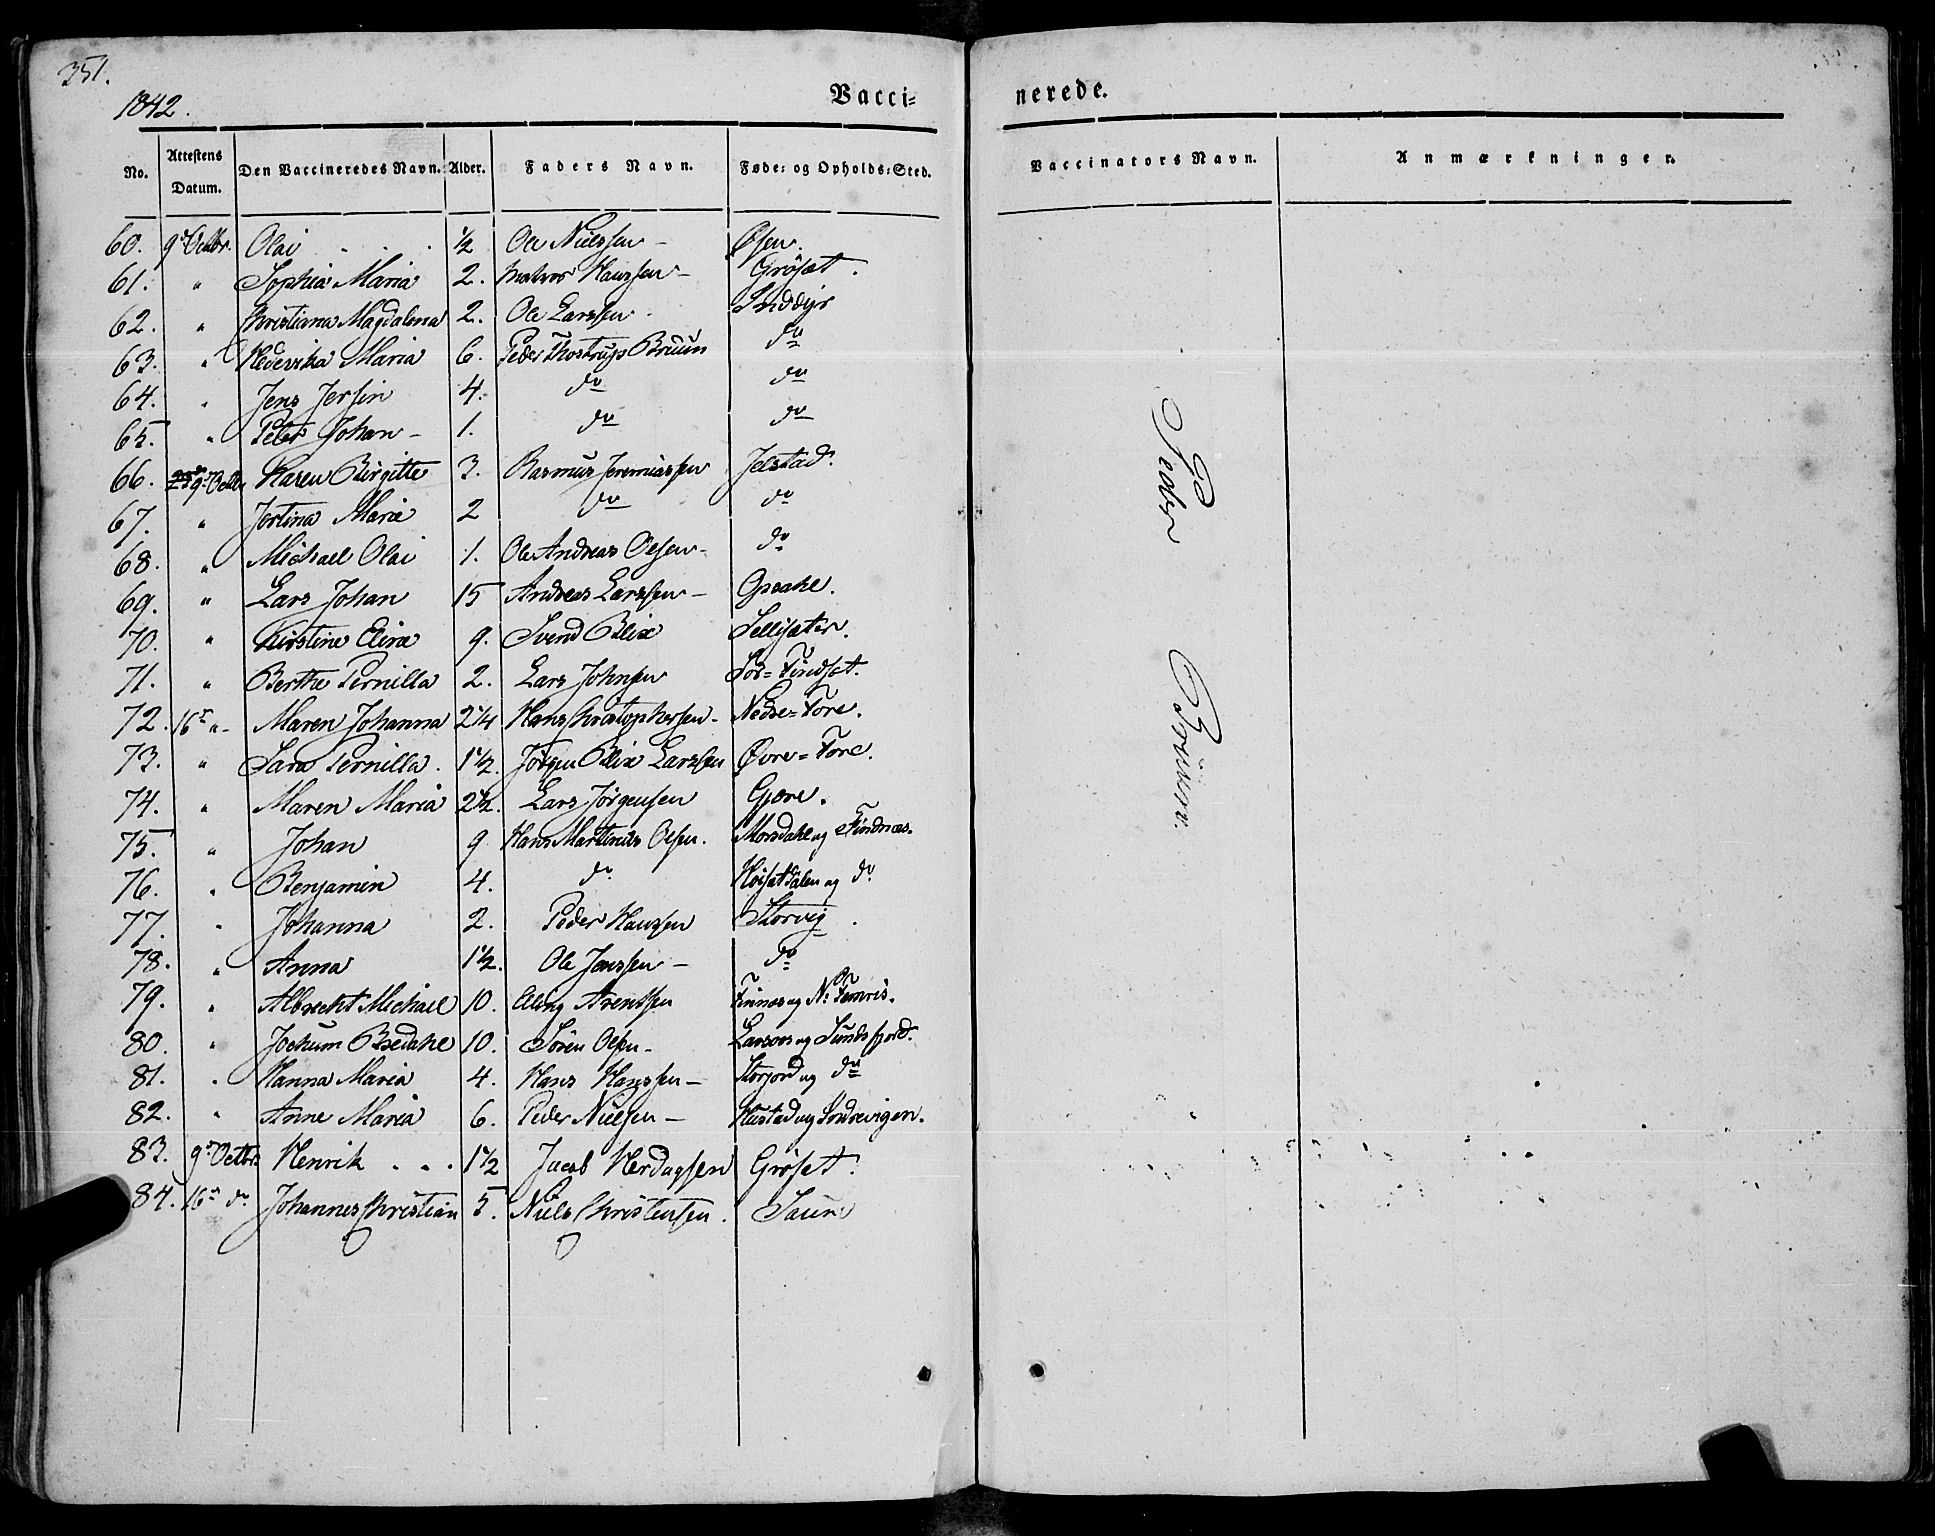 351.
1842.
Vacci-
nerede.
No. Attestens Datum. Den Vaccineredes Navn. Alder. Faders Navn. Føde- og Opholds-Sted.
Vaccinators Navn. Anmærkninger.
60. 9de Octbr. Olai ½ Ole Nielssen - Øsen.
61. " Sophia Maria 2. Hanssen - Grøset.
62. " Christiana Magdalena 2. Ole Larssen. Inddyr
63. " Hedevika Maria 6. Peder Thostrup Bruun do
64. " Jens Jersin 4. do do
65. " Peter Johan - 1. do do
66. 9de Octbr Karen Birgitte 3. Rasmus Jeremiassen Jelstad.
67. " Jertina Maria 2 do do
68. " Michael Olai 1. Ole Andreas Olsen - do
69. " Lars Johan 15 Andreas Larssen - Opsahl.
70. " Kirstine Elisa 9. Svend Blix Sellisæter.
71. " Berthe Pernilla 2. Lars Johnsen Sør-Findset.
72. 16de " - Maren Johanna 2¼ Hans Christophersen - Nedre-Fore.
73. " Sara Pernilla. 1½. Jørgen Blix Larssen Øvre-Fore.
74. " Maren Maria 2½. Lars Jørgensen Gjøre.
75. " Johan 9 Hans Martinus Olsen. Morsdahl og Findnæs.
76. " Benjamin 4. do og do
77. " Johanna 2. Peder Hanssen Storvig.
78. " Anna 1½. Ole Jenssen - do
79. " Albrecht Michael 10. Arentsen Finnæs og N:
80. " Jochum Bredahl 10. Søren Olsen - Larsos og Sundsfjord.
81. " Hanna Maria 4. Hans Hanssen - Storjord og do
82. " Anne Maria 6. Peder Nielsen - Hustad og Sordrevigen.
83. 9de Octbr Henrik . . . 1½ Jacob Herdagssen Grøset.
84. 16de do Johannes Christian 5. Niels Christensen. Saura
Peder Bruun.